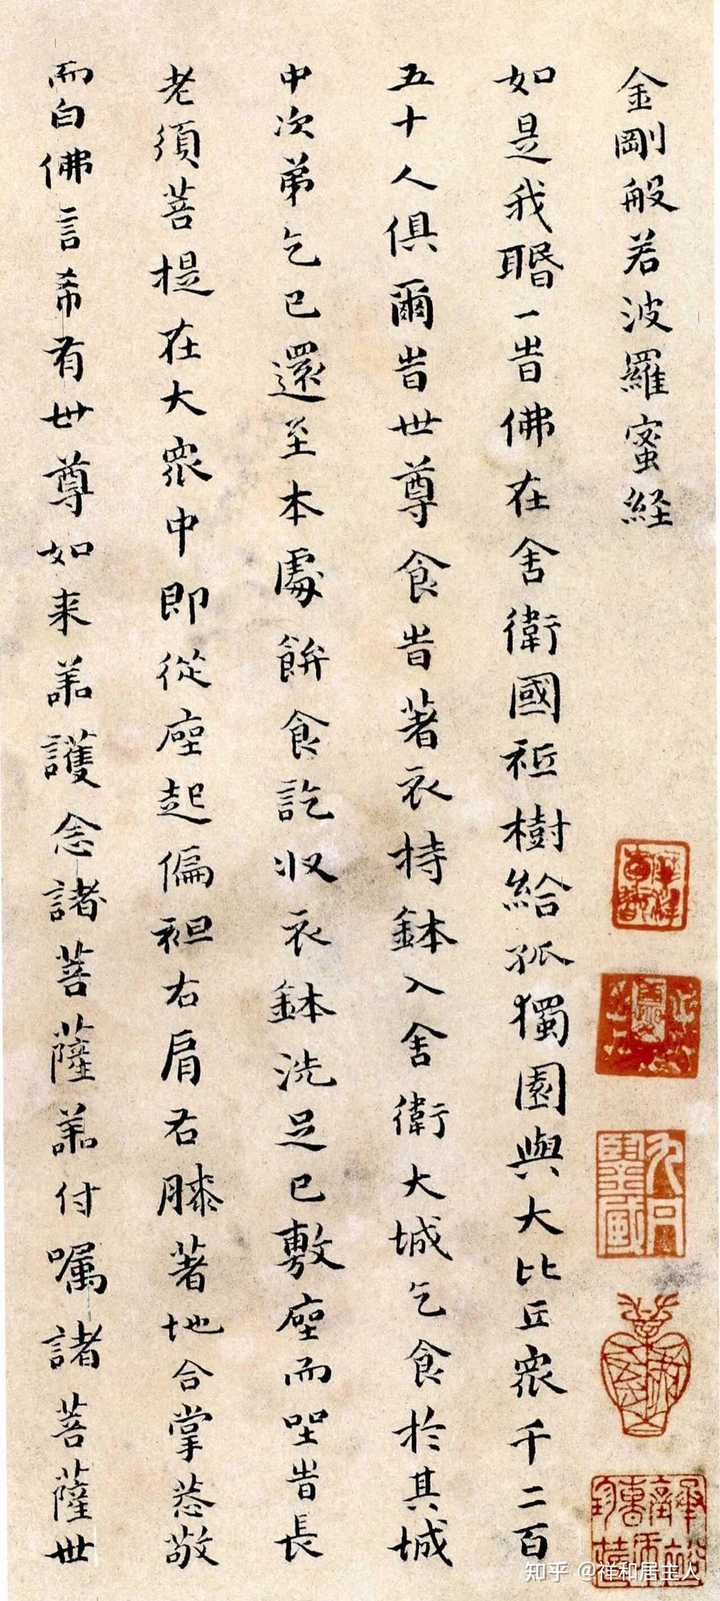 金剛般若波羅蜜經
如是我聞一旹佛在舍衛國祇樹給孤獨園與大比丘衆千二百
五十人俱爾旹世尊食旹著衣持鉢入舍衛大城乞食於其城
中次弟乞已還至本處飯食訖收衣鉢洗足已敷座而坐旹長
老須菩提在大衆中即從座起偏袒右肩右膝著地合掌恭敬
而白佛言希有世尊如来善護念諸菩薩善付嘱諸菩薩世
知乎 @祥和居主人